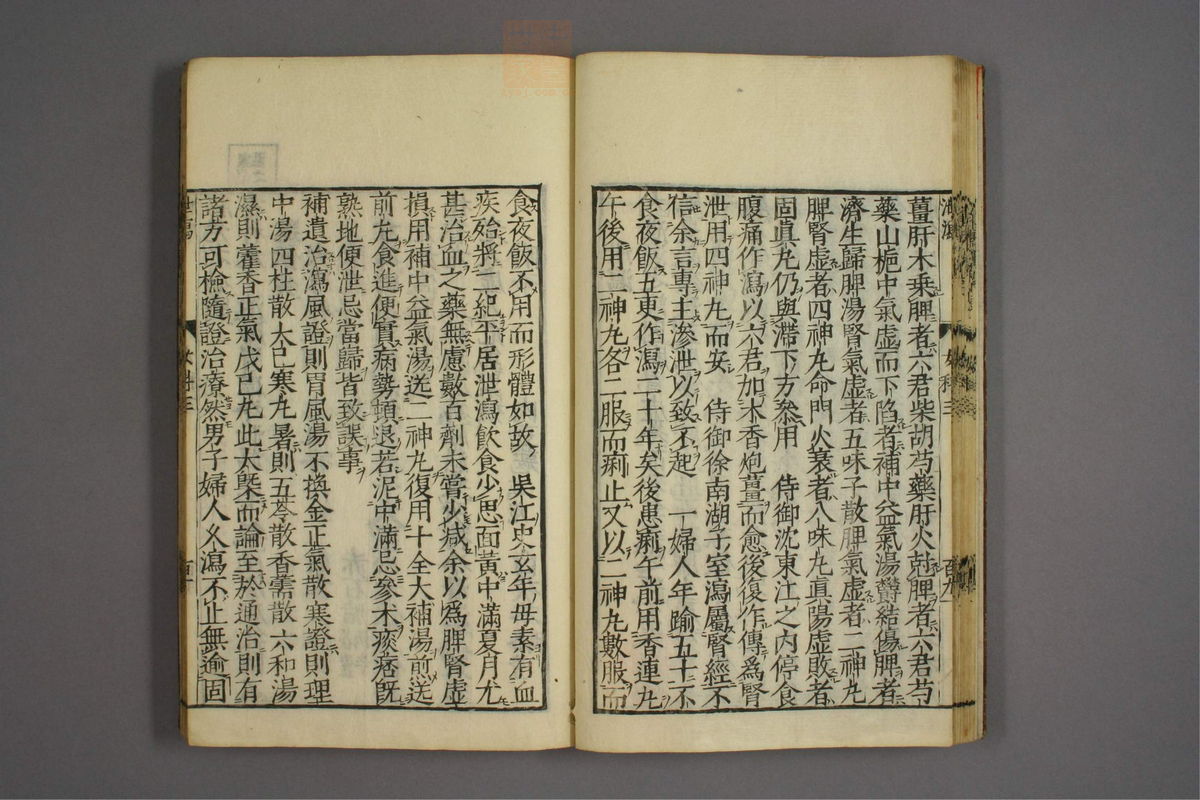 薑肝木乘脾者六君柴胡芍藥肝火剋脾者六君芍
藥山梔中氣虛而下陷者補中益氣湯鬱結傷脾者
濟生歸脾湯腎氣虛者五味子散脾氣虛者二神丸
脾腎虛者四神丸命門火衰者八味丸真陽虛敗者
固真丸仍與滯下方叅用　侍御沈東江之内停食
腹痛作瀉以六君加木香炮薑而愈後復作傳爲腎
泄用四神丸而安　侍御徐南湖子室瀉屬腎經不
信余言專主滲泄以致不起　一婦人年踰五十不
食夜飯五更作瀉二十年矣後患痢午前用香連丸
午後用二神丸各二服而痢止又以二神丸數服而
食夜飯不用而形體如故　吳江史玄年母素有血
疾殆將二紀平居泄瀉飲食少思面黄中滿夏月尤
甚治血之藥無慮數百劑未嘗少減余以爲脾腎虛
損用補中益氣湯送二神丸復用十全大補湯煎送
前丸食進便實病勢頓退若泥中滿忌參术痰痞旣
熟地便泄忌當歸皆致誤事
補遺治瀉風證則胃風湯不換金正氣散寒證則理
中湯四柱散大已寒丸暑則五苓散香薷散六和湯
濕則　藿香正氣戊己丸此大槩而論至於通治則有
諸方可檢隨證治療然男子婦人久瀉不止無逾固
女科三